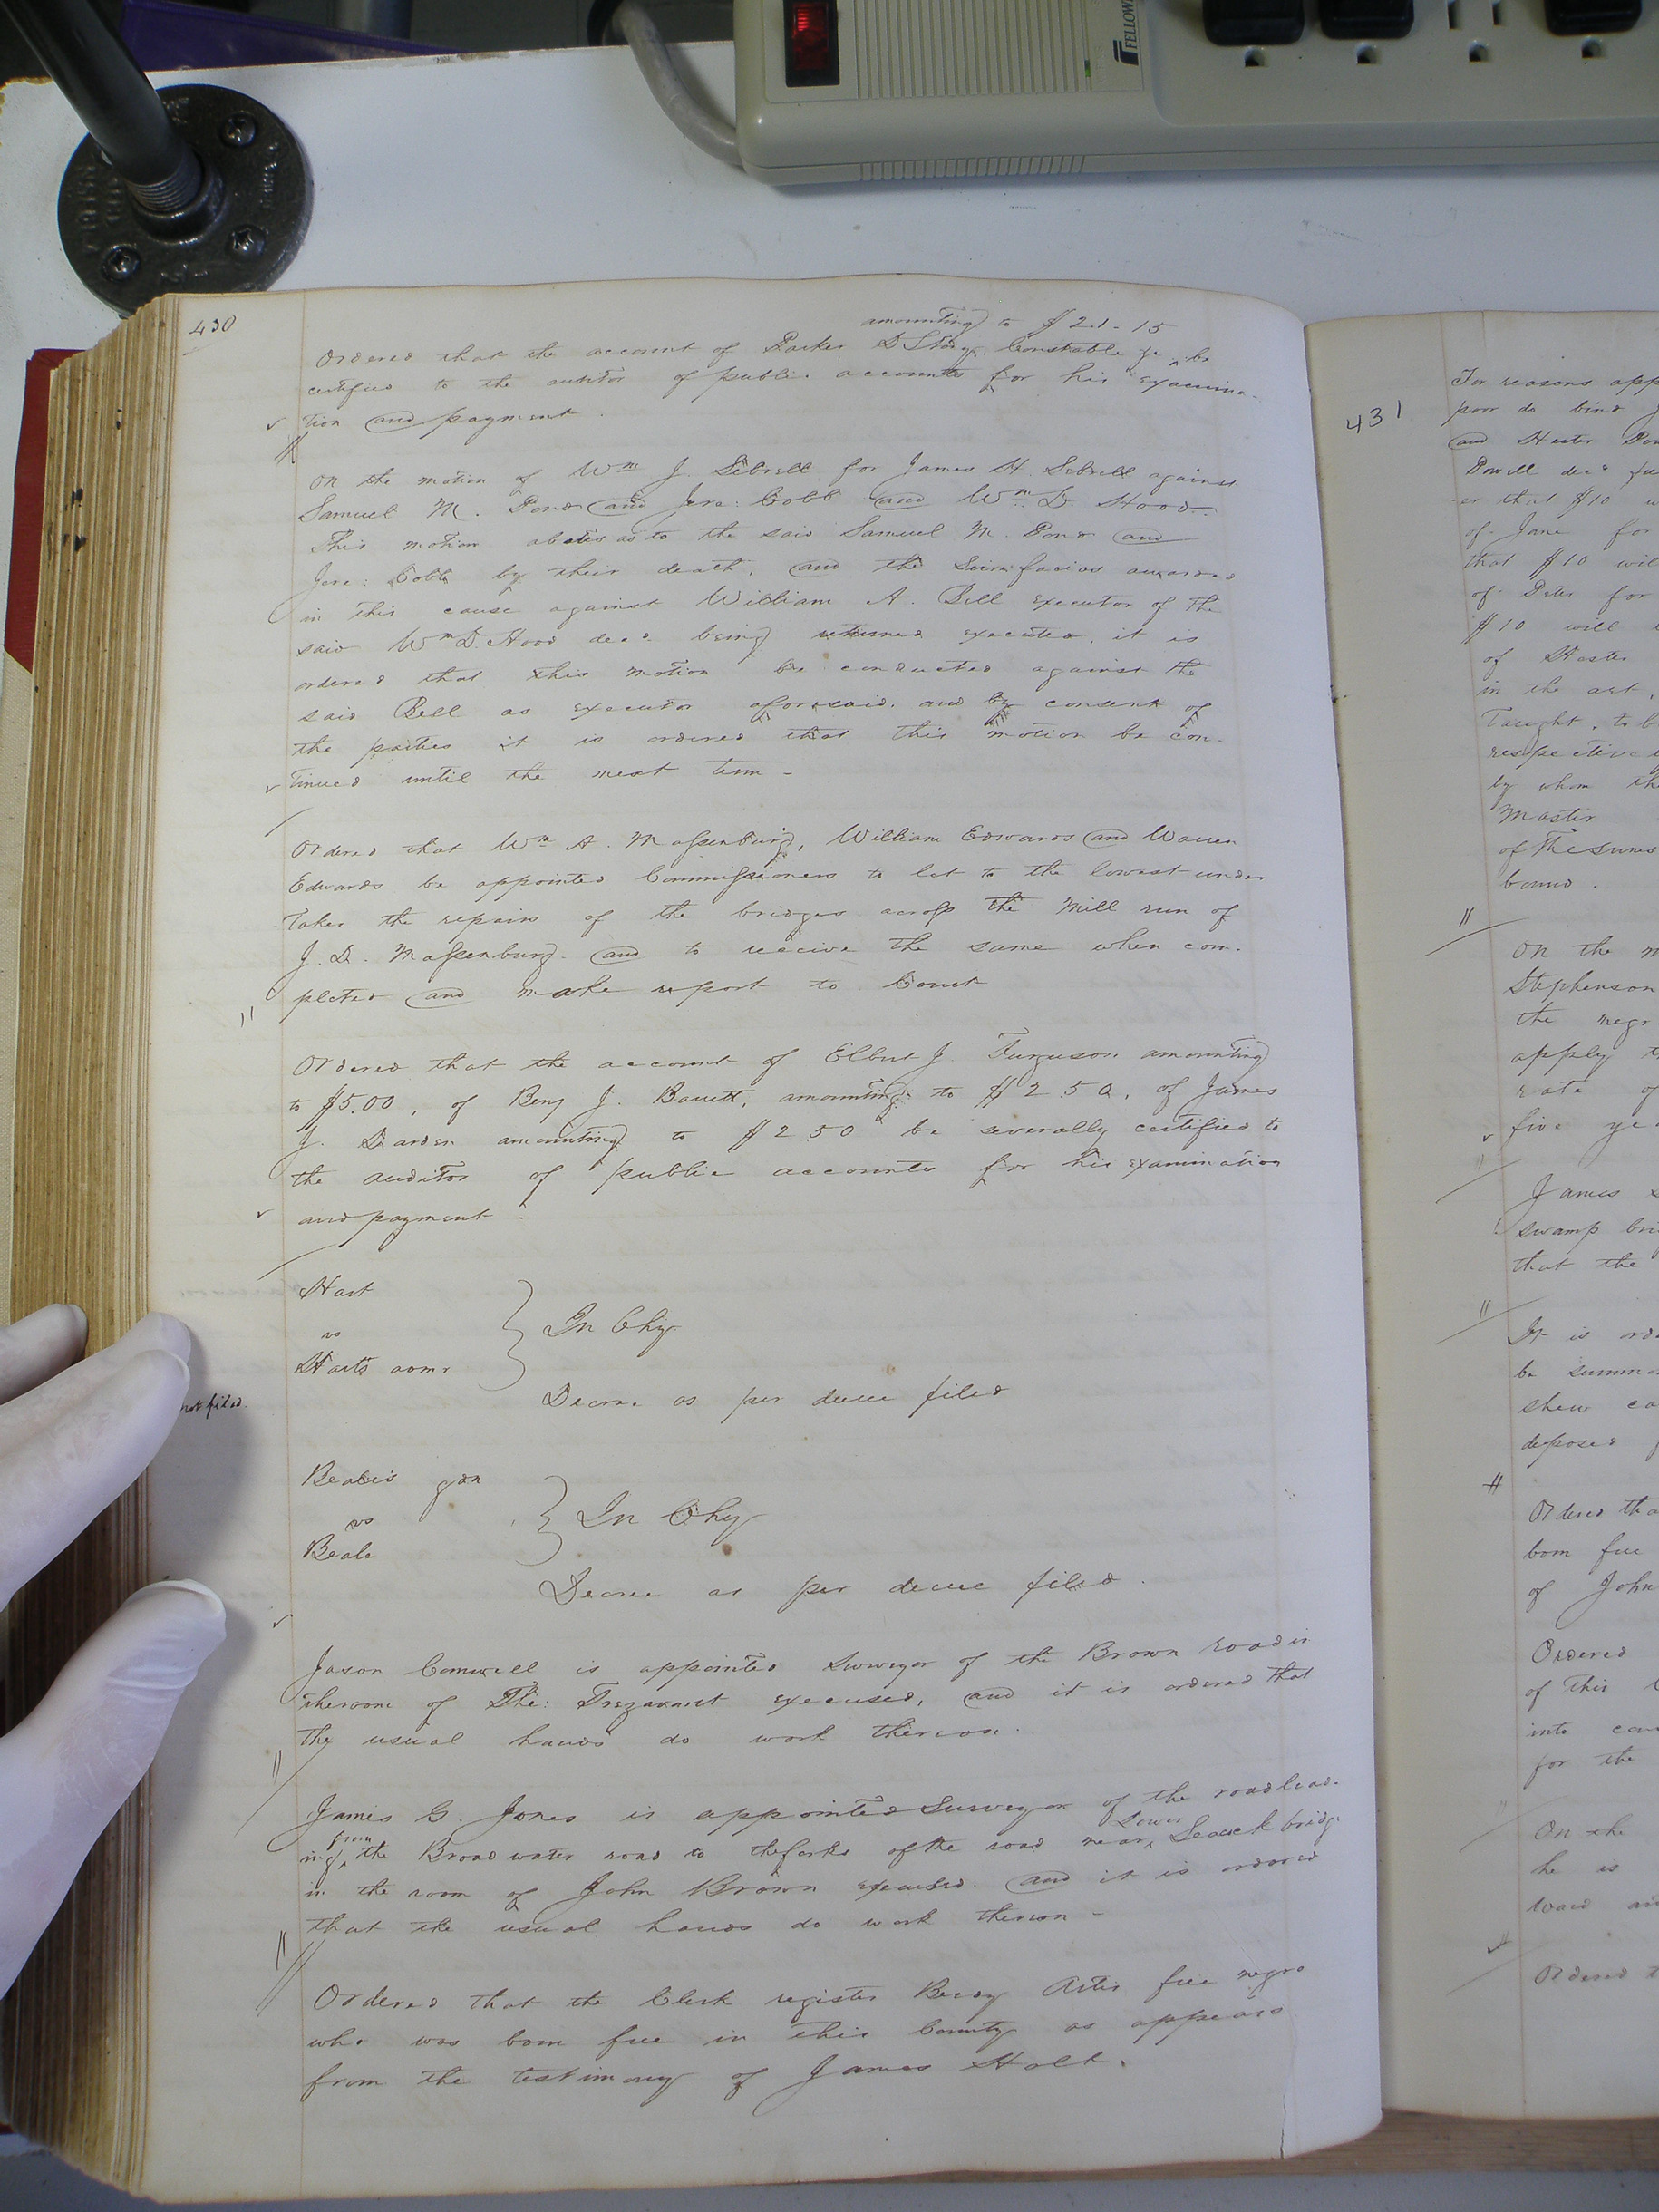 FELLOW
430
amounting to $21-15
Ordered that the account of Parker D Story, Constable &c, be
certified to the auditor of public accounts for his examina-
tion and payment.
On the motion of Wm J. Sebrell for James H. Sebrell against
Samuel M. Pond and Jere: Cobb and Wm. D. Hood.
This motion abates as to the said Samuel M. Pond and
Jere: Cobb by their death, and the Scire facias awarded
in this cause against William A. Bell executor of the
said Wm D. Hood decd being returned executed, it is
ordered that this motion be conducted against the
said Bell as executor aforesaid, and by consent of
the parties it is ordered that this motion be con-
tinued until the next term -
Ordered that Wm A. Massenburg, William Edwards and Warren
Edwards be appointed Commissioners to let to the lowest under
taker the repairs of the bridges across the Mill run of
J. D. Massenburg. and to receive the same when com-
pleted and make report to Court
Ordered that the account of Elbert J. Furguson amounting
to $5.00, of Benj J. Barrett, amounting to $2.50, of James
J. Darden amounting to $2.50 be severally certified to
the auditor of public accounts for his examination
and payment.
Hart
vs
Hart's admr
In Chy
Decree as per decree filed
not filed.
Beale's gdn
vs
Beale
In Chy
Decree as per decree filed.
Jason Comwell is appointed Surveyor of the Brown road in
the room of Tho: Trezavant excused, and it is ordered that
the usual hands do work thereon.
James G. Jones is appointed Surveyor of the road lead-
ing from the Broad water road to the forks of the road near Lower Seacock bridge
in the room of John Brown excused. and it is ordered
that the usual hands do work thereon -
Ordered that the Clerk register Beedy Artis free negro
who was born free in this County as appears
from the testimony of James Holt.
431
For reasons app
poor do bind J
and Hester Pow
Powell decd free
er that $10 w
of Jane for
that $10 wil
of Peter for
$10 will
of Hester
in the art,
taught, to b
respective
by whom the
Master
of the sums
bound.
On the m
Stephenson
the negr
apply t
rate of
five yea
James
swamp bri
that the
It is ord
be summo
shew ca
deposed f
Ordered tha
born free
of John
Ordered
of this
into con
for the
On the
he is
ward an
Ordered t